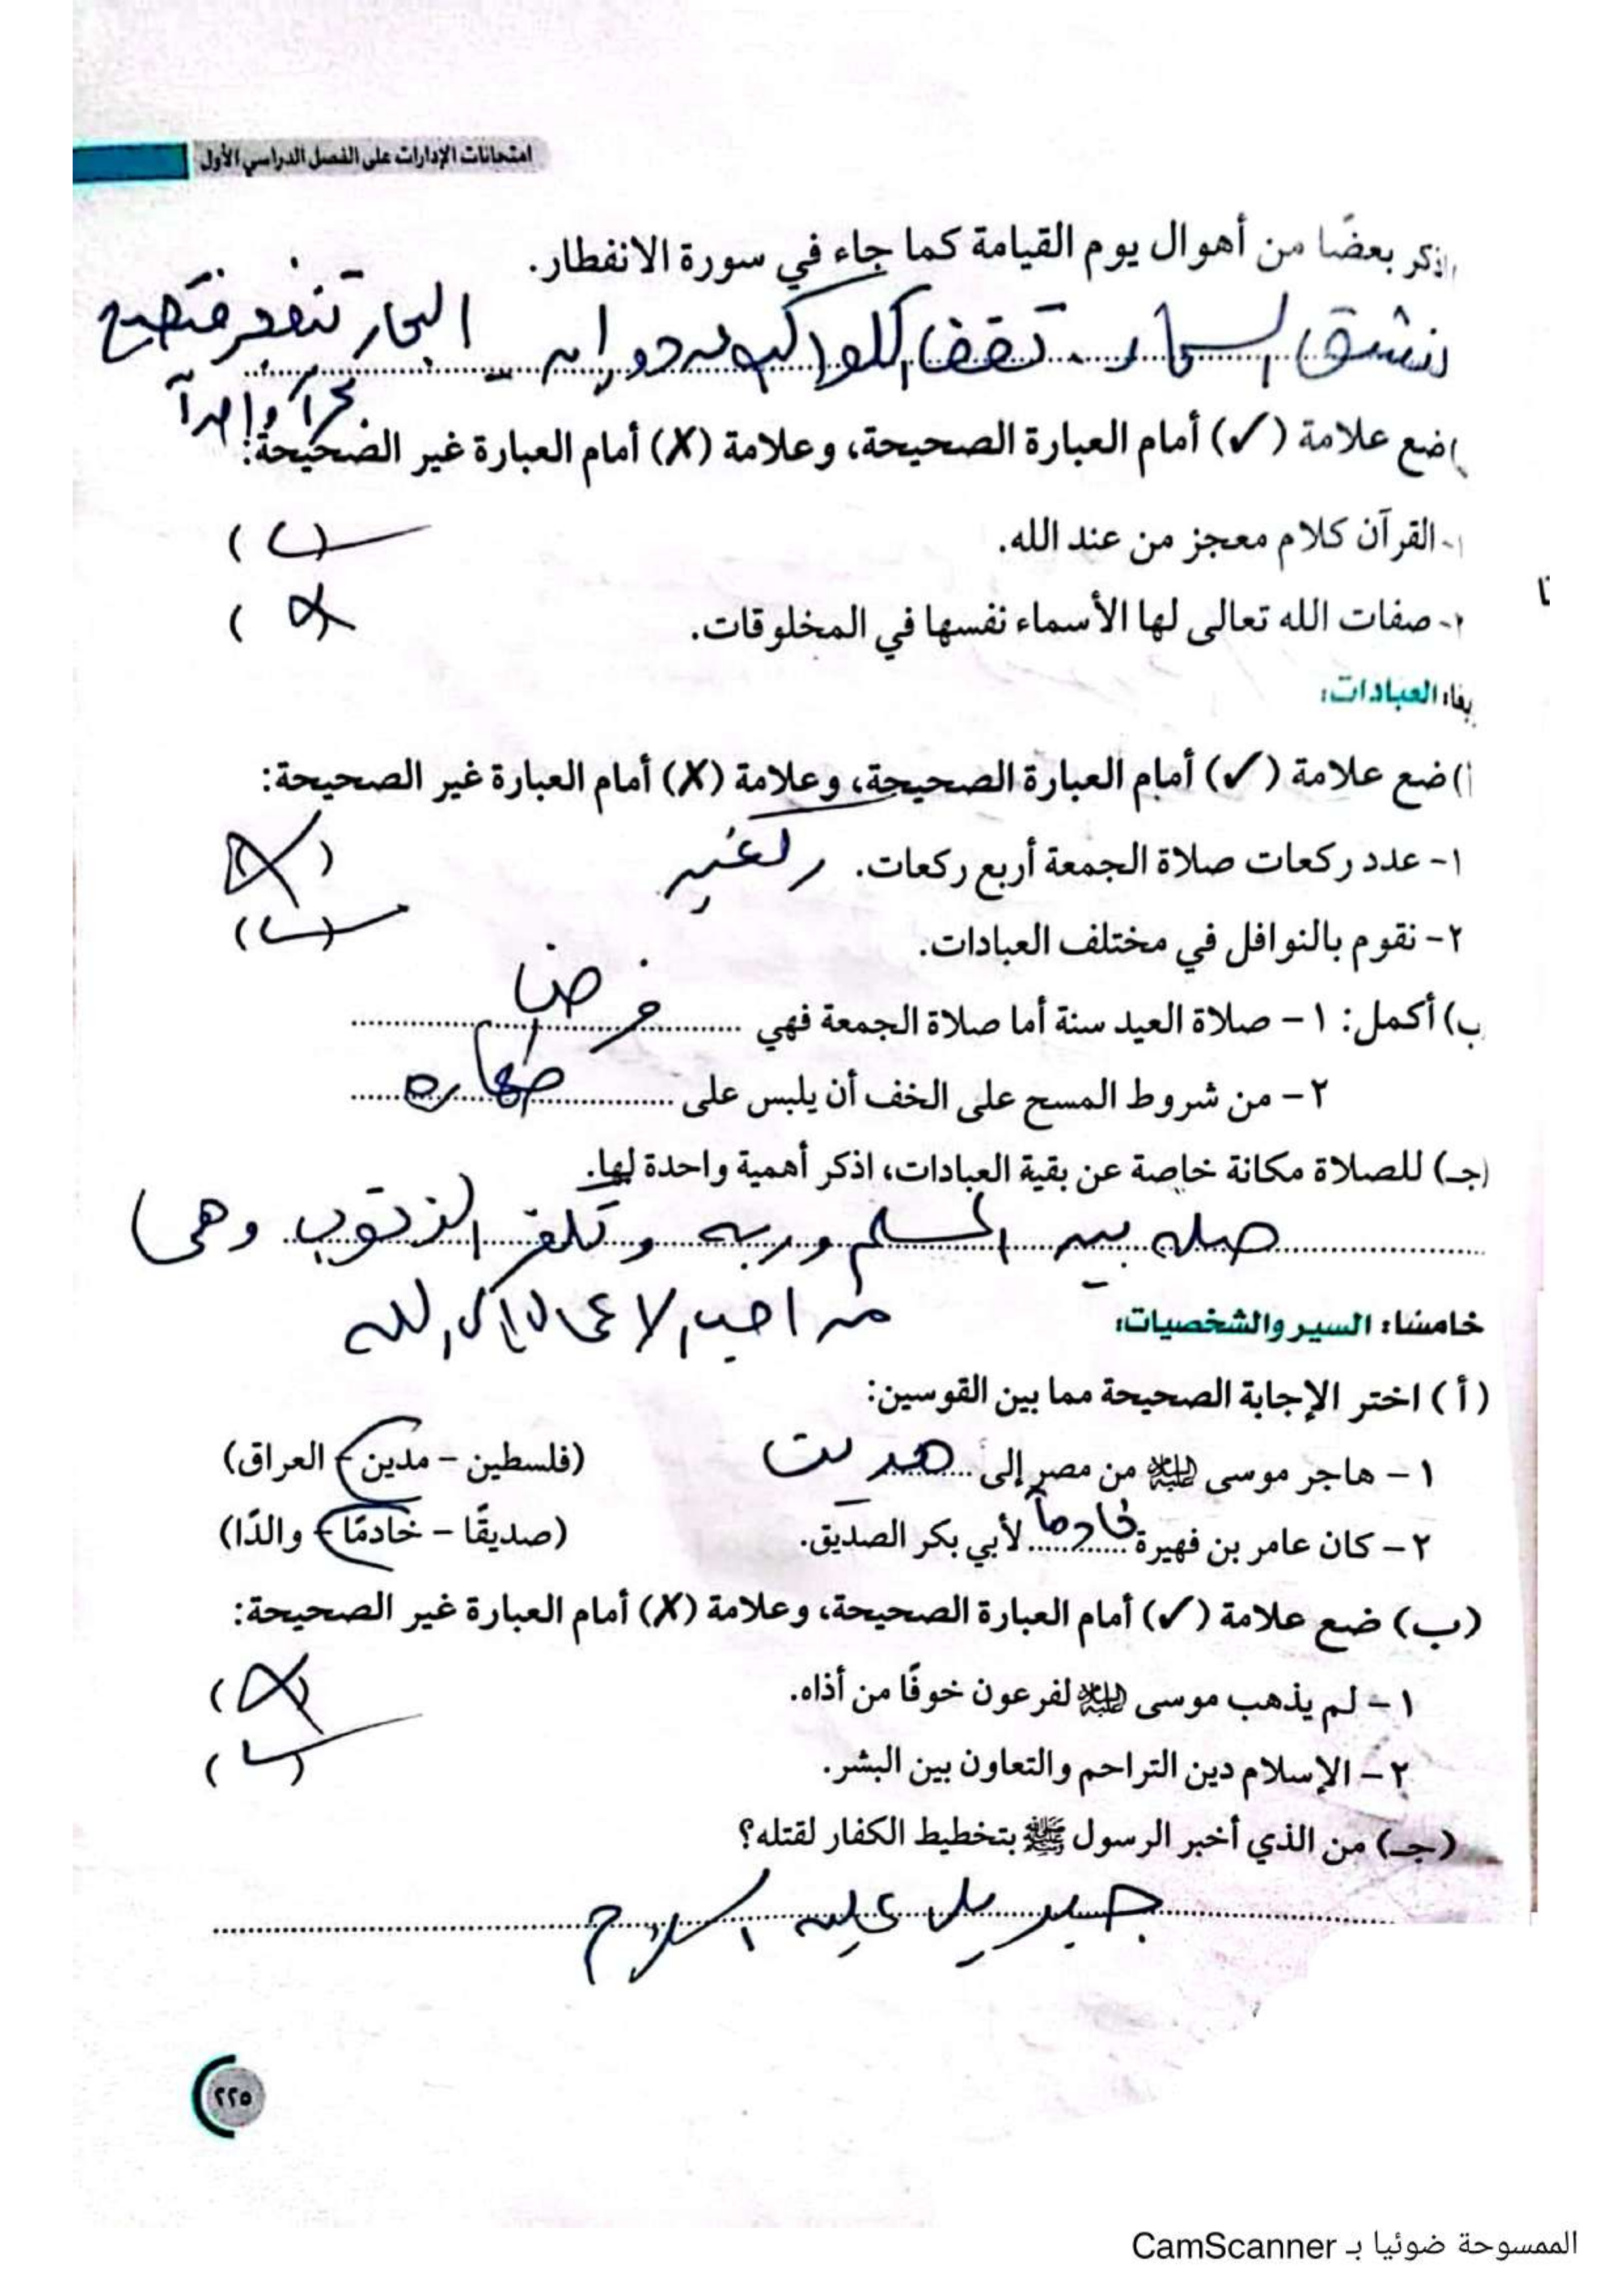 امتحانات الإدارات على الفصل الدراسي الأول
اذكر بعضًا من أهوال يوم القيامة كما جاء في سورة الانفطار.
تنشق السماء - تقف الكواكب عن دورانها - البحار تنفجر فتصبح
بحراً واحداً
ضع علامة (✓) أمام العبارة الصحيحة، وعلامة (✗) أمام العبارة غير الصحيحة:
١- القرآن كلام معجز من عند الله. (✓)
٢- صفات الله تعالى لها الأسماء نفسها في المخلوقات. (✗)
العبادات:
أ) ضع علامة (✓) أمام العبارة الصحيحة، وعلامة (✗) أمام العبارة غير الصحيحة:
١- عدد ركعات صلاة الجمعة أربع ركعات. ركعتين (✗)
٢- نقوم بالنوافل في مختلف العبادات. (✓)
ب) أكمل: ١- صلاة العيد سنة أما صلاة الجمعة فهي ...... فرضا
٢- من شروط المسح على الخف أن يلبس على ...... طهاره
(جـ) للصلاة مكانة خاصة عن بقية العبادات، اذكر أهمية واحدة لها.
صله بين المسلم وربه وتكفر الذنوب وهى
من احب الاعمال إلى الله
خامسًا: السير والشخصيات:
(أ) اختر الإجابة الصحيحة مما بين القوسين:
١- هاجر موسى عليه السلام من مصر إلى ...... مدين (فلسطين - مدين - العراق)
٢- كان عامر بن فهيرة خادماً لأبي بكر الصديق. (صديقًا - خادمًا - والدًا)
(ب) ضع علامة (✓) أمام العبارة الصحيحة، وعلامة (✗) أمام العبارة غير الصحيحة:
١- لم يذهب موسى عليه السلام لفرعون خوفًا من أذاه. (✗)
٢- الإسلام دين التراحم والتعاون بين البشر. (✓)
(جـ) من الذي أخبر الرسول ﷺ بتخطيط الكفار لقتله؟
جبريل عليه السلام
٢٢٥
الممسوحة ضوئيا بـ CamScanner